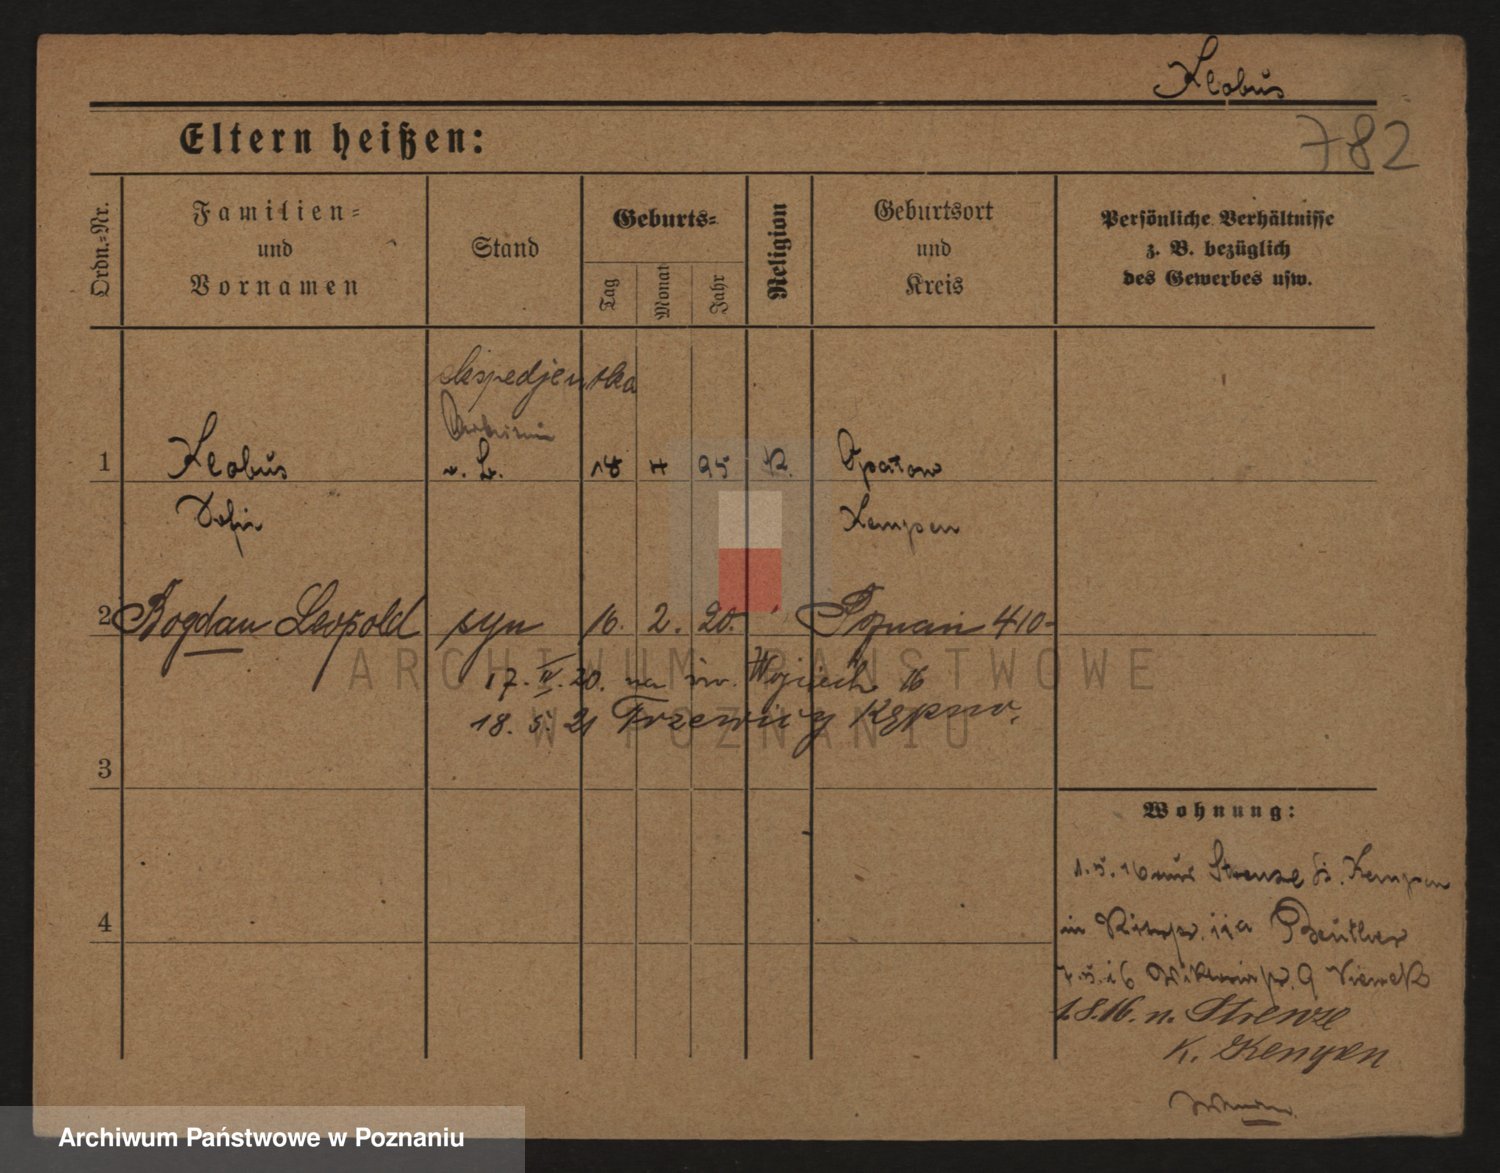 Klobus
782
Eltern heißen:
Ordn.-Nr.
Familien-
und
Vornamen
Stand
Geburts-
Tag
Monat
Jahr
Religion
Geburtsort
und
Kreis
Persönliche Verhältnisse
z. B. bezüglich
des Gewerbes usw.
ekspedjentka
1 Klobus 18 4 95 Opatow
Sofie Kempen
2 Bogdan Leopold syn 16. 2. 20. Poznań 410-
17. IV. 20. na św. Wojciech 16
18. 5. 21 Trzewicy Kępno.
3
Wohnung:
1.5.16 aus Strenze b. Kempen
4
in Beuthner
7.5.16 9
1.8.16. n. Strenze
K. Kempen
ARCHIWUM PAŃSTWOWE
W POZNANIU
Archiwum Państwowe w Poznaniu